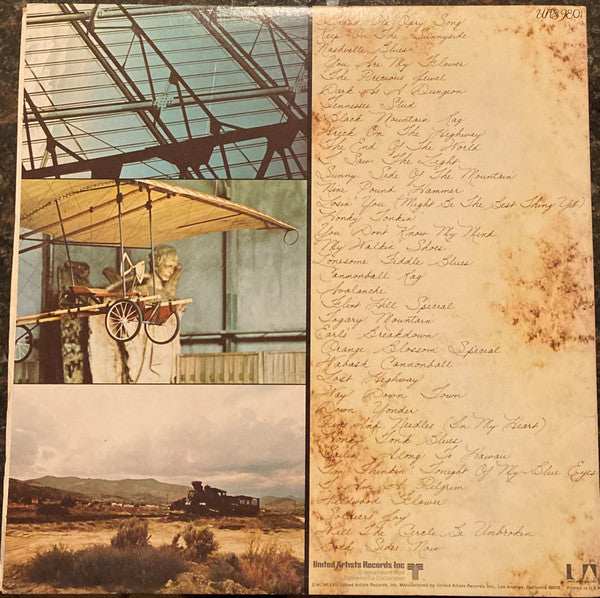 UAS 9801
Grand Ole Opry Song
Keep On The Sunnyside
Nashville Blues
You Are My Flower
The Precious Jewel
Dark As A Dungeon
Tennessee Stud
Black Mountain Rag
Wreck On The Highway
The End Of The World
I Saw The Light
Sunny Side Of The Mountain
Nine Pound Hammer
Losin' You (Might Be The Best Thing Yet)
Honky Tonkin'
You Don't Know My Mind
My Walkin' Shoes
Lonesome Fiddle Blues
Cannonball Rag
Avalanche
Flint Hill Special
Togary Mountain
Earl's Breakdown
Orange Blossom Special
Wabash Cannonball
Lost Highway
Way Down Town
Down Yonder
Pins And Needles (In My Heart)
Honky Tonk Blues
Sailin' Along To Hawaii
I'm Thinkin' Tonight Of My Blue Eyes
I Am A Pilgrim
Wildwood Flower
Soldier's Joy
Will The Circle Be Unbroken
Both Sides Now
United Artists Records Inc
Entertainment from
Transamerica Corporation
UA
© MCMLXXII United Artists Records, Inc. Manufactured by United Artists Records, Inc., Los Angeles, California 90028
Printed in U.S.A.